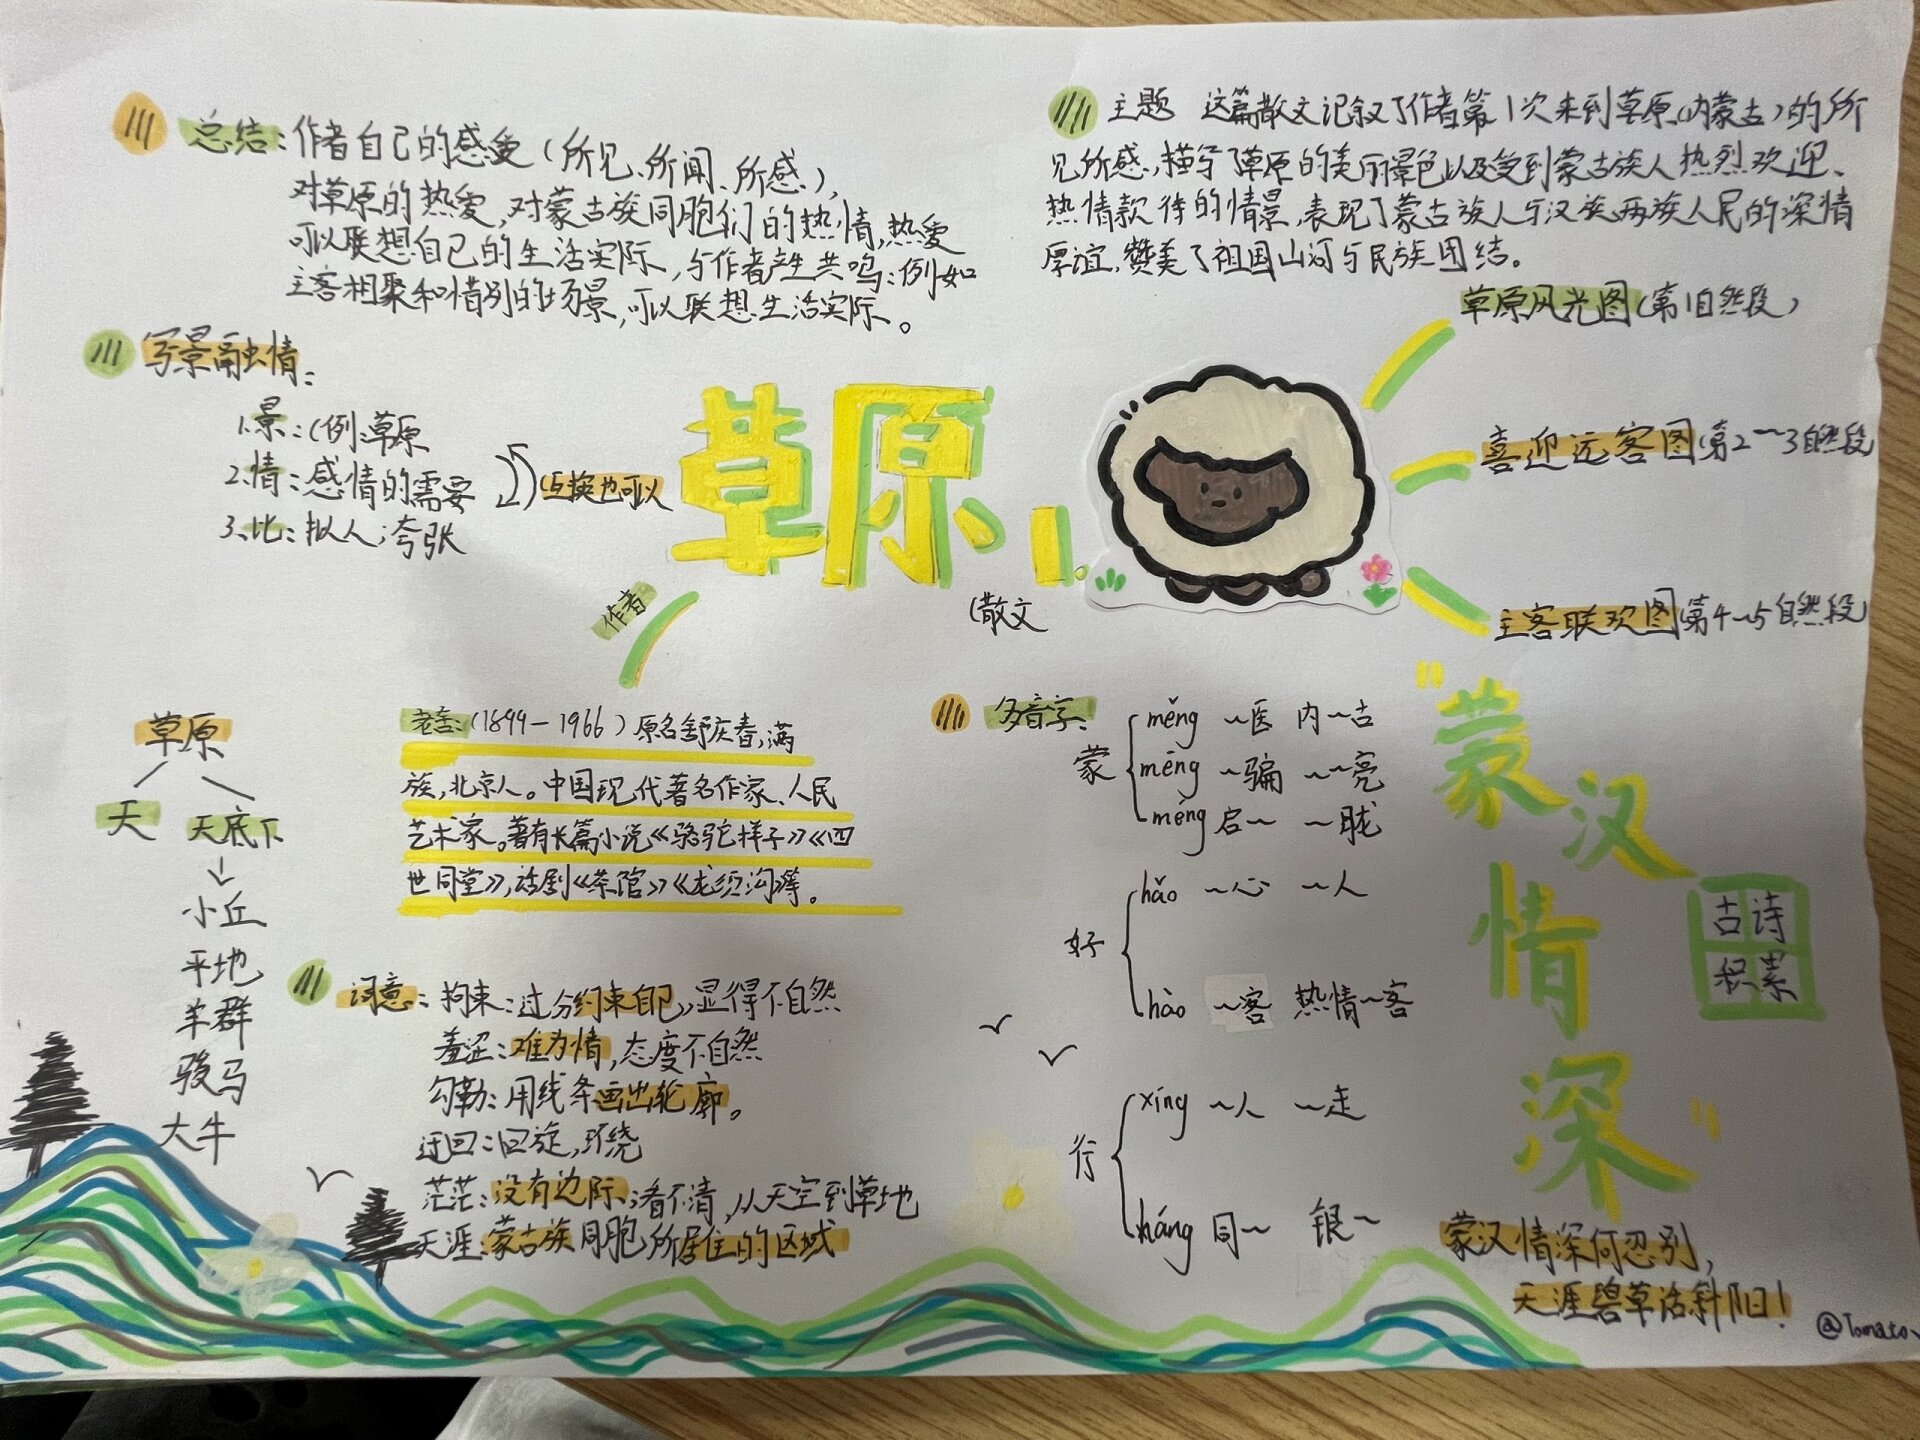 总结：作者自己的感受（所见、所闻、所感），
对草原的热爱，对蒙古族同胞们的热情，热爱
可以联想自己的生活实际，与作者产生共鸣：例如
主客相聚和惜别的场景，可以联想生活实际。
写景融情：
1.景：（例：草原
2.情：感情的需要
3.比：拟人；夸张
互换也可以
主题 这篇散文记叙了作者第1次来到草原（内蒙古）的所
见所感，描写了草原的美丽景色以及受到蒙古族人热烈欢迎、
热情款待的情景，表现了蒙古族人与汉族两族人民的深情
厚谊，赞美了祖国山河与民族团结。
草原
1.
（散文
草原风光图（第1自然段）
喜迎远客图（第2~3自然段
主客联欢图（第4~5自然段）
作者
老舍：（1899－1966）原名舒庆春，满
族，北京人。中国现代著名作家、人民
艺术家。著有长篇小说《骆驼祥子》《四
世同堂》，话剧《茶馆》《龙须沟》等。
草原
天 天底下
小丘
平地
羊群
骏马
大牛
词意：拘束：过分约束自己，显得不自然
羞涩：难为情，态度不自然
勾勒：用线条画出轮廓。
迂回：回旋，环绕
茫茫：没有边际；看不清，从天空到草地
天涯：蒙古族同胞所居住的区域
多音字：
蒙
měng ~医 内~古
mēng ~骗 ~~亮
méng 启~ ~胧
好
hǎo ~心 ~人
hào ~客 热情~客
行
xíng ~人 ~走
háng 同~ 银~
"蒙汉情深"
古诗
积累
蒙汉情深何忍别，
天涯碧草话斜阳！
@Tomato